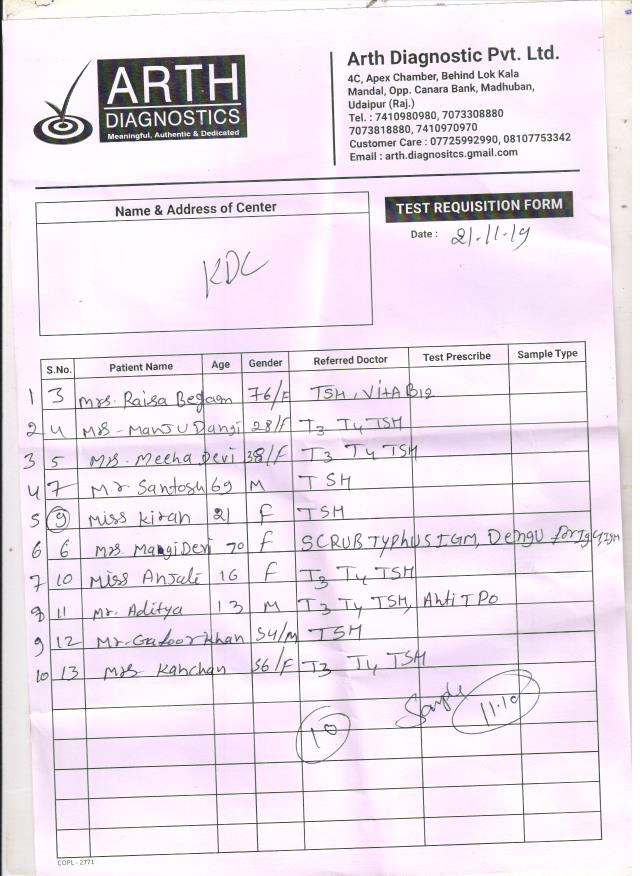 ARTH
DIAGNOSTICS
Meaningful, Authentic & Dedicated
Arth Diagnostic Pvt. Ltd.
4C, Apex Chamber, Behind Lok Kala
Mandal, Opp. Canara Bank, Madhuban,
Udaipur (Raj.)
Tel. : 7410980980, 7073308880
7073818880, 7410970970
Customer Care : 07725992990, 08107753342
Email : arth.diagnositcs.gmail.com
Name & Address of Center
KDC
TEST REQUISITION FORM
Date : 21.11.19
S.No. Patient Name Age Gender Referred Doctor Test Prescribe Sample Type
1 3 Mrs. Raisa Begam 76/F TSH, VitA B12
2 4 Mrs - Manju Dangi 28/F T3 T4 TSH
3 5 Mrs. Meeha Devi 38/F T3 T4 TSH
4 7 Mr Santosh 69 M TSH
5 9 Miss Kiran 21 F TSH
6 6 Mrs MangiDevi 70 F SCRUB TYPHUS IGM, Dengu for IgG, IgM
7 10 Miss Anjali 16 F T3 T4 TSH
8 11 Mr. Aditya 13 M T3 T4 TSH, Anti TPO
9 12 Mr. Gafoor Khan 54/M TSH
10 13 Mrs Kanchan 56/F T3 T4 TSH
10 Sample 11.10
COPL - 2771